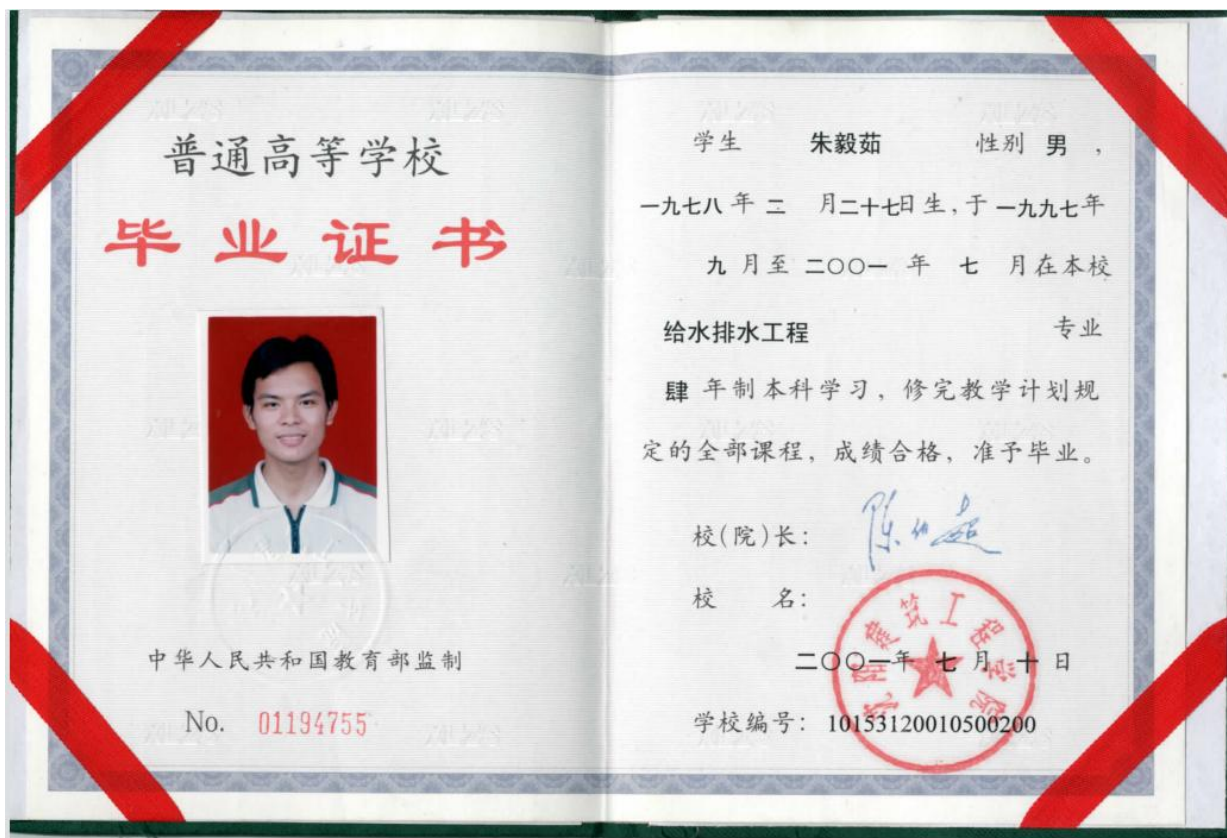 普通高等学校
毕业证书
中华人民共和国教育部监制
No. 01194755
学生 朱毅茹 性别 男,
一九七八年 二 月二十七日生,于一九九七年
九 月至 二〇〇一 年 七 月在本校
给水排水工程 专业
肆 年制本科学习，修完教学计划规
定的全部课程，成绩合格，准予毕业。
校(院)长: 陈伯超
校 名:
沈阳建筑工程学院
二〇〇一年 七 月 十 日
学校编号: 10153120010500200